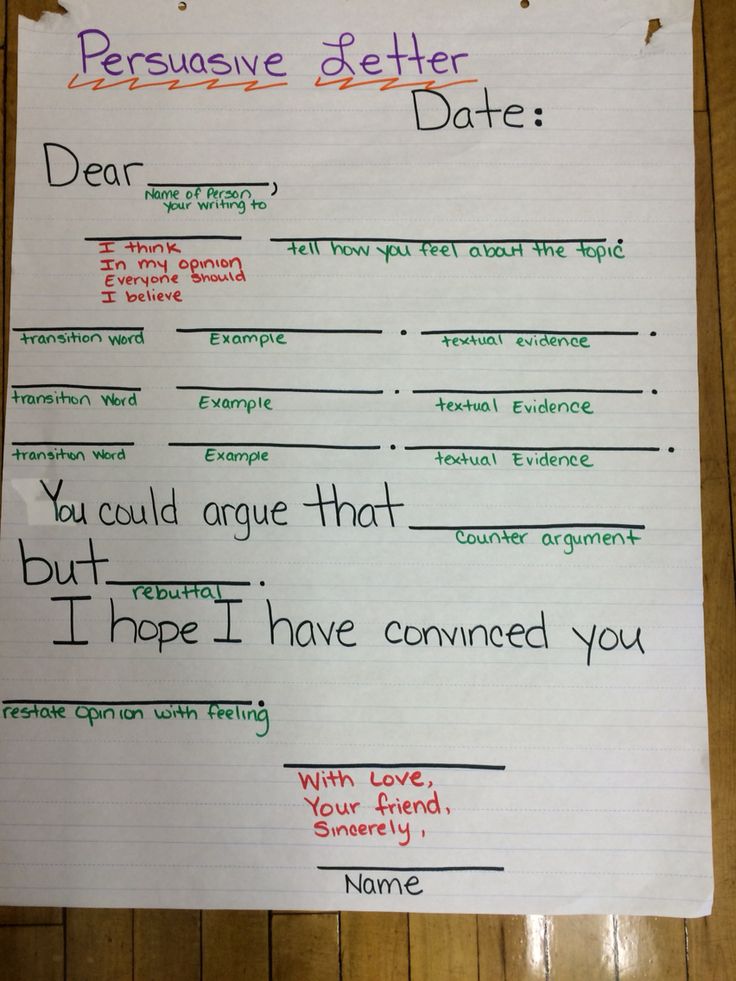 Persuasive Letter
Date:
Dear ________,
Name of Person
your writing to
________ ________.
I think
In my opinion
Everyone should
I believe
tell how you feel about the topic
________ ________. ________.
transition word Example textual evidence
________ ________. ________.
transition word Example textual Evidence
________ ________. ________.
transition word Example textual Evidence
You could argue that ________
counter argument
but ________.
rebuttal
I hope I have convinced you
________.
restate opinion with feeling
________
With Love,
Your friend,
Sincerely,
________
Name